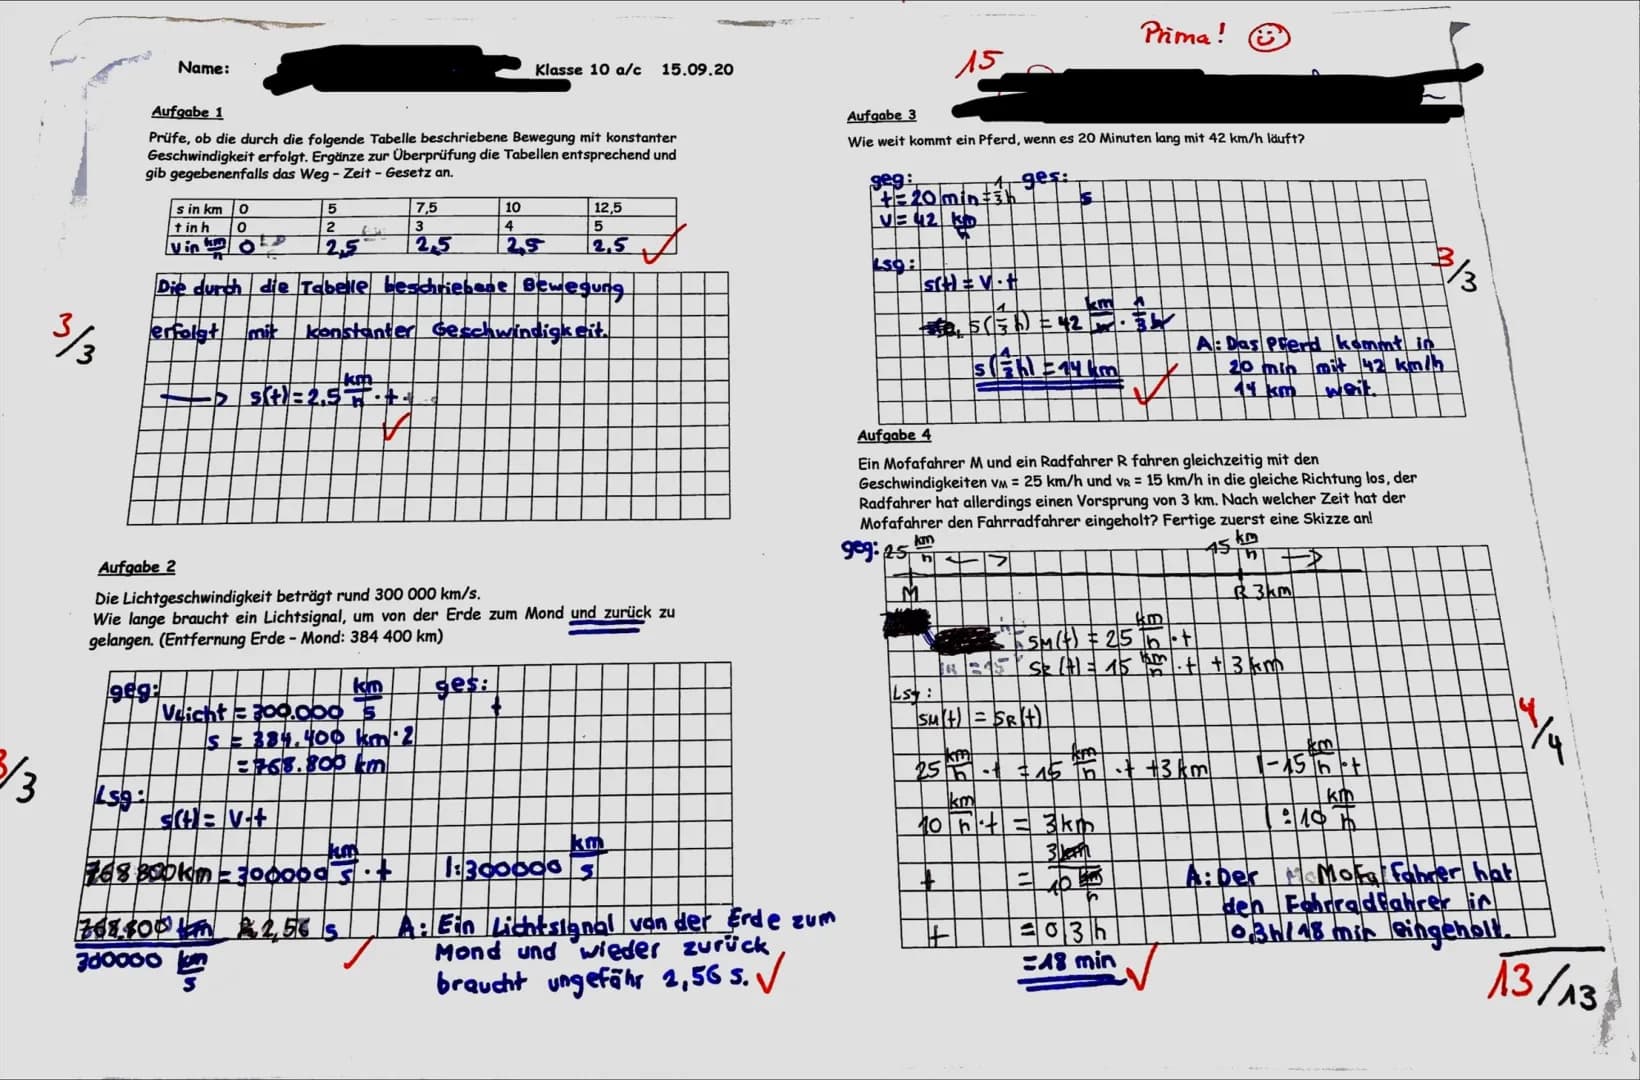 Name:
Klasse 10 a/c 15.09.20
Aufgabe 1
Prüfe, ob die durch die folgende Tabelle beschriebene Bewegung mit konstanter
Geschwindigkeit erfolgt. Ergänze zur Überprüfung die Tabellen entsprechend und
gib gegebenenfalls das Weg - Zeit - Gesetz an.
s in km 0 5 7,5 10 12,5
t in h 0 2 3 4 5
v in km/h 0 2,5 2,5 2,5 2,5
Die durch die Tabelle beschriebene Bewegung
erfolgt mit konstanter Geschwindigkeit.
3/3
→ s(t) = 2,5 km/h · t
Aufgabe 2
Die Lichtgeschwindigkeit beträgt rund 300 000 km/s.
Wie lange braucht ein Lichtsignal, um von der Erde zum Mond und zurück zu
gelangen. (Entfernung Erde - Mond: 384 400 km)
geg: ges:
VLicht = 300.000 km/s t
s = 384.400 km · 2
= 768.800 km
3/3
Lsg:
s(t) = V·t
768 800km = 300000 km/s · t |:300000 km/s
768.800 km / 300000 km/s ≈ 2,56 s
A: Ein Lichtsignal von der Erde zum
Mond und wieder zurück
braucht ungefähr 2,56 s.
Prima!
15
Aufgabe 3
Wie weit kommt ein Pferd, wenn es 20 Minuten lang mit 42 km/h läuft?
geg: ges:
t = 20 min = 1/3 h s
V = 42 km/h
Lsg:
s(t) = V · t
s(1/3 h) = 42 km/h · 1/3 h
s(1/3 h) = 14 km
A: Das Pferd kommt in
20 min mit 42 km/h
14 km weit.
3/3
Aufgabe 4
Ein Mofafahrer M und ein Radfahrer R fahren gleichzeitig mit den
Geschwindigkeiten vM = 25 km/h und vR = 15 km/h in die gleiche Richtung los, der
Radfahrer hat allerdings einen Vorsprung von 3 km. Nach welcher Zeit hat der
Mofafahrer den Fahrradfahrer eingeholt? Fertige zuerst eine Skizze an!
geg: 25 km/h 15 km/h
M R 3km
sM(t) = 25 km/h · t
sR(t) = 15 km/h · t + 3 km
Lsg:
sM(t) = sR(t)
25 km/h · t = 15 km/h · t + 3km |-15 km/h · t
10 km/h · t = 3km |:10 km/h
t = 3km / 10 km/h
t = 0,3h
= 18 min
A: Der Mofafahrer hat
den Fahrradfahrer in
0,3h/18 min eingeholt.
4/4
13/13